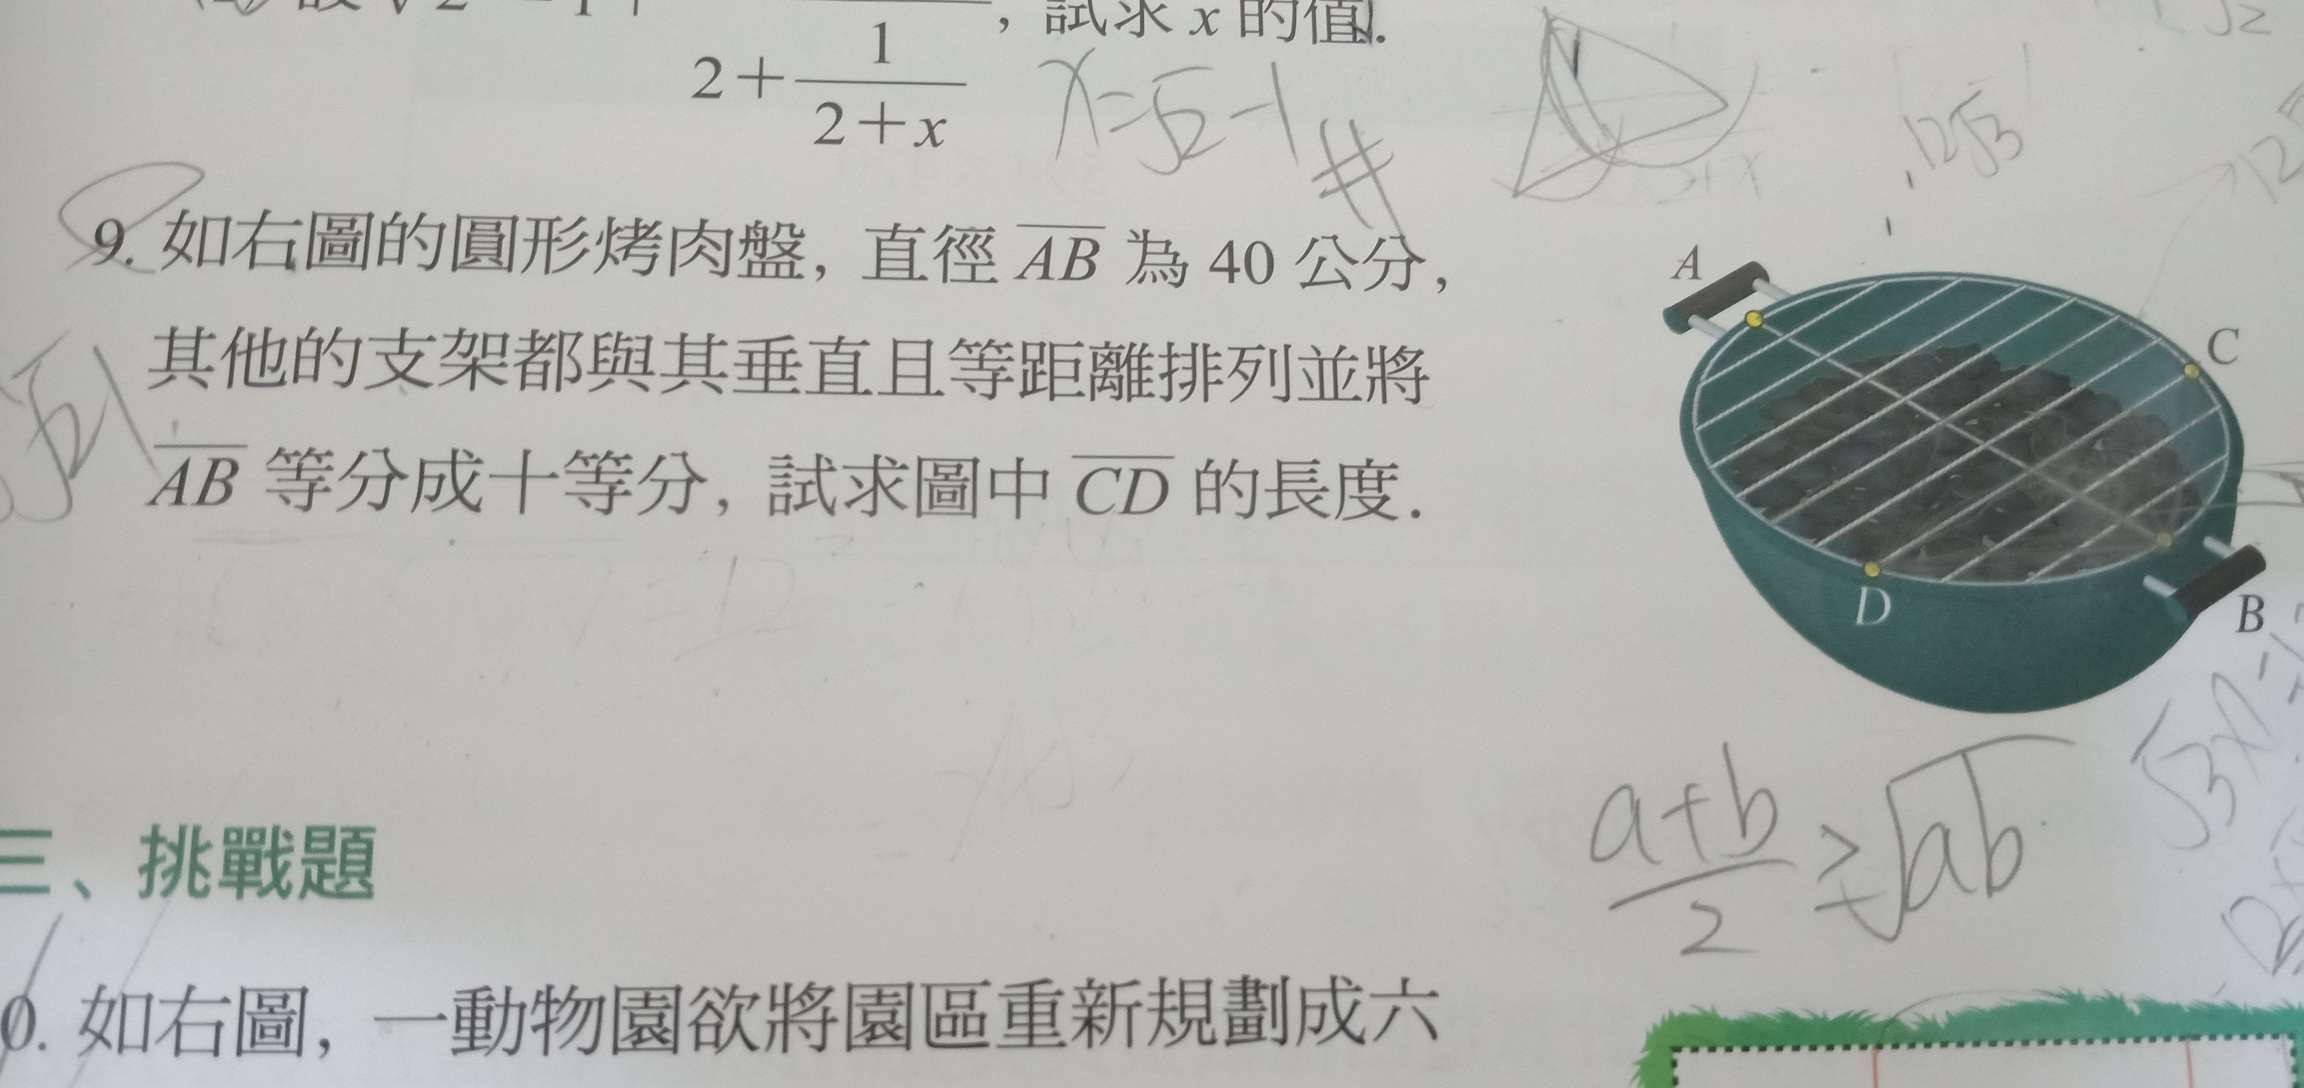 試求 x 的值.
1
2+
2+x
x=√2-1 #
12√3
9. 如右圖的圓形烤肉盤, 直徑 AB 為 40 公分,
其他的支架都與其垂直且等距離排列並將
AB 等分成十等分, 試求圖中 CD 的長度.
A
C
D
B
a+b
2
≥√ab
三、挑戰題
0. 如右圖, 一動物園欲將園區重新規劃成六